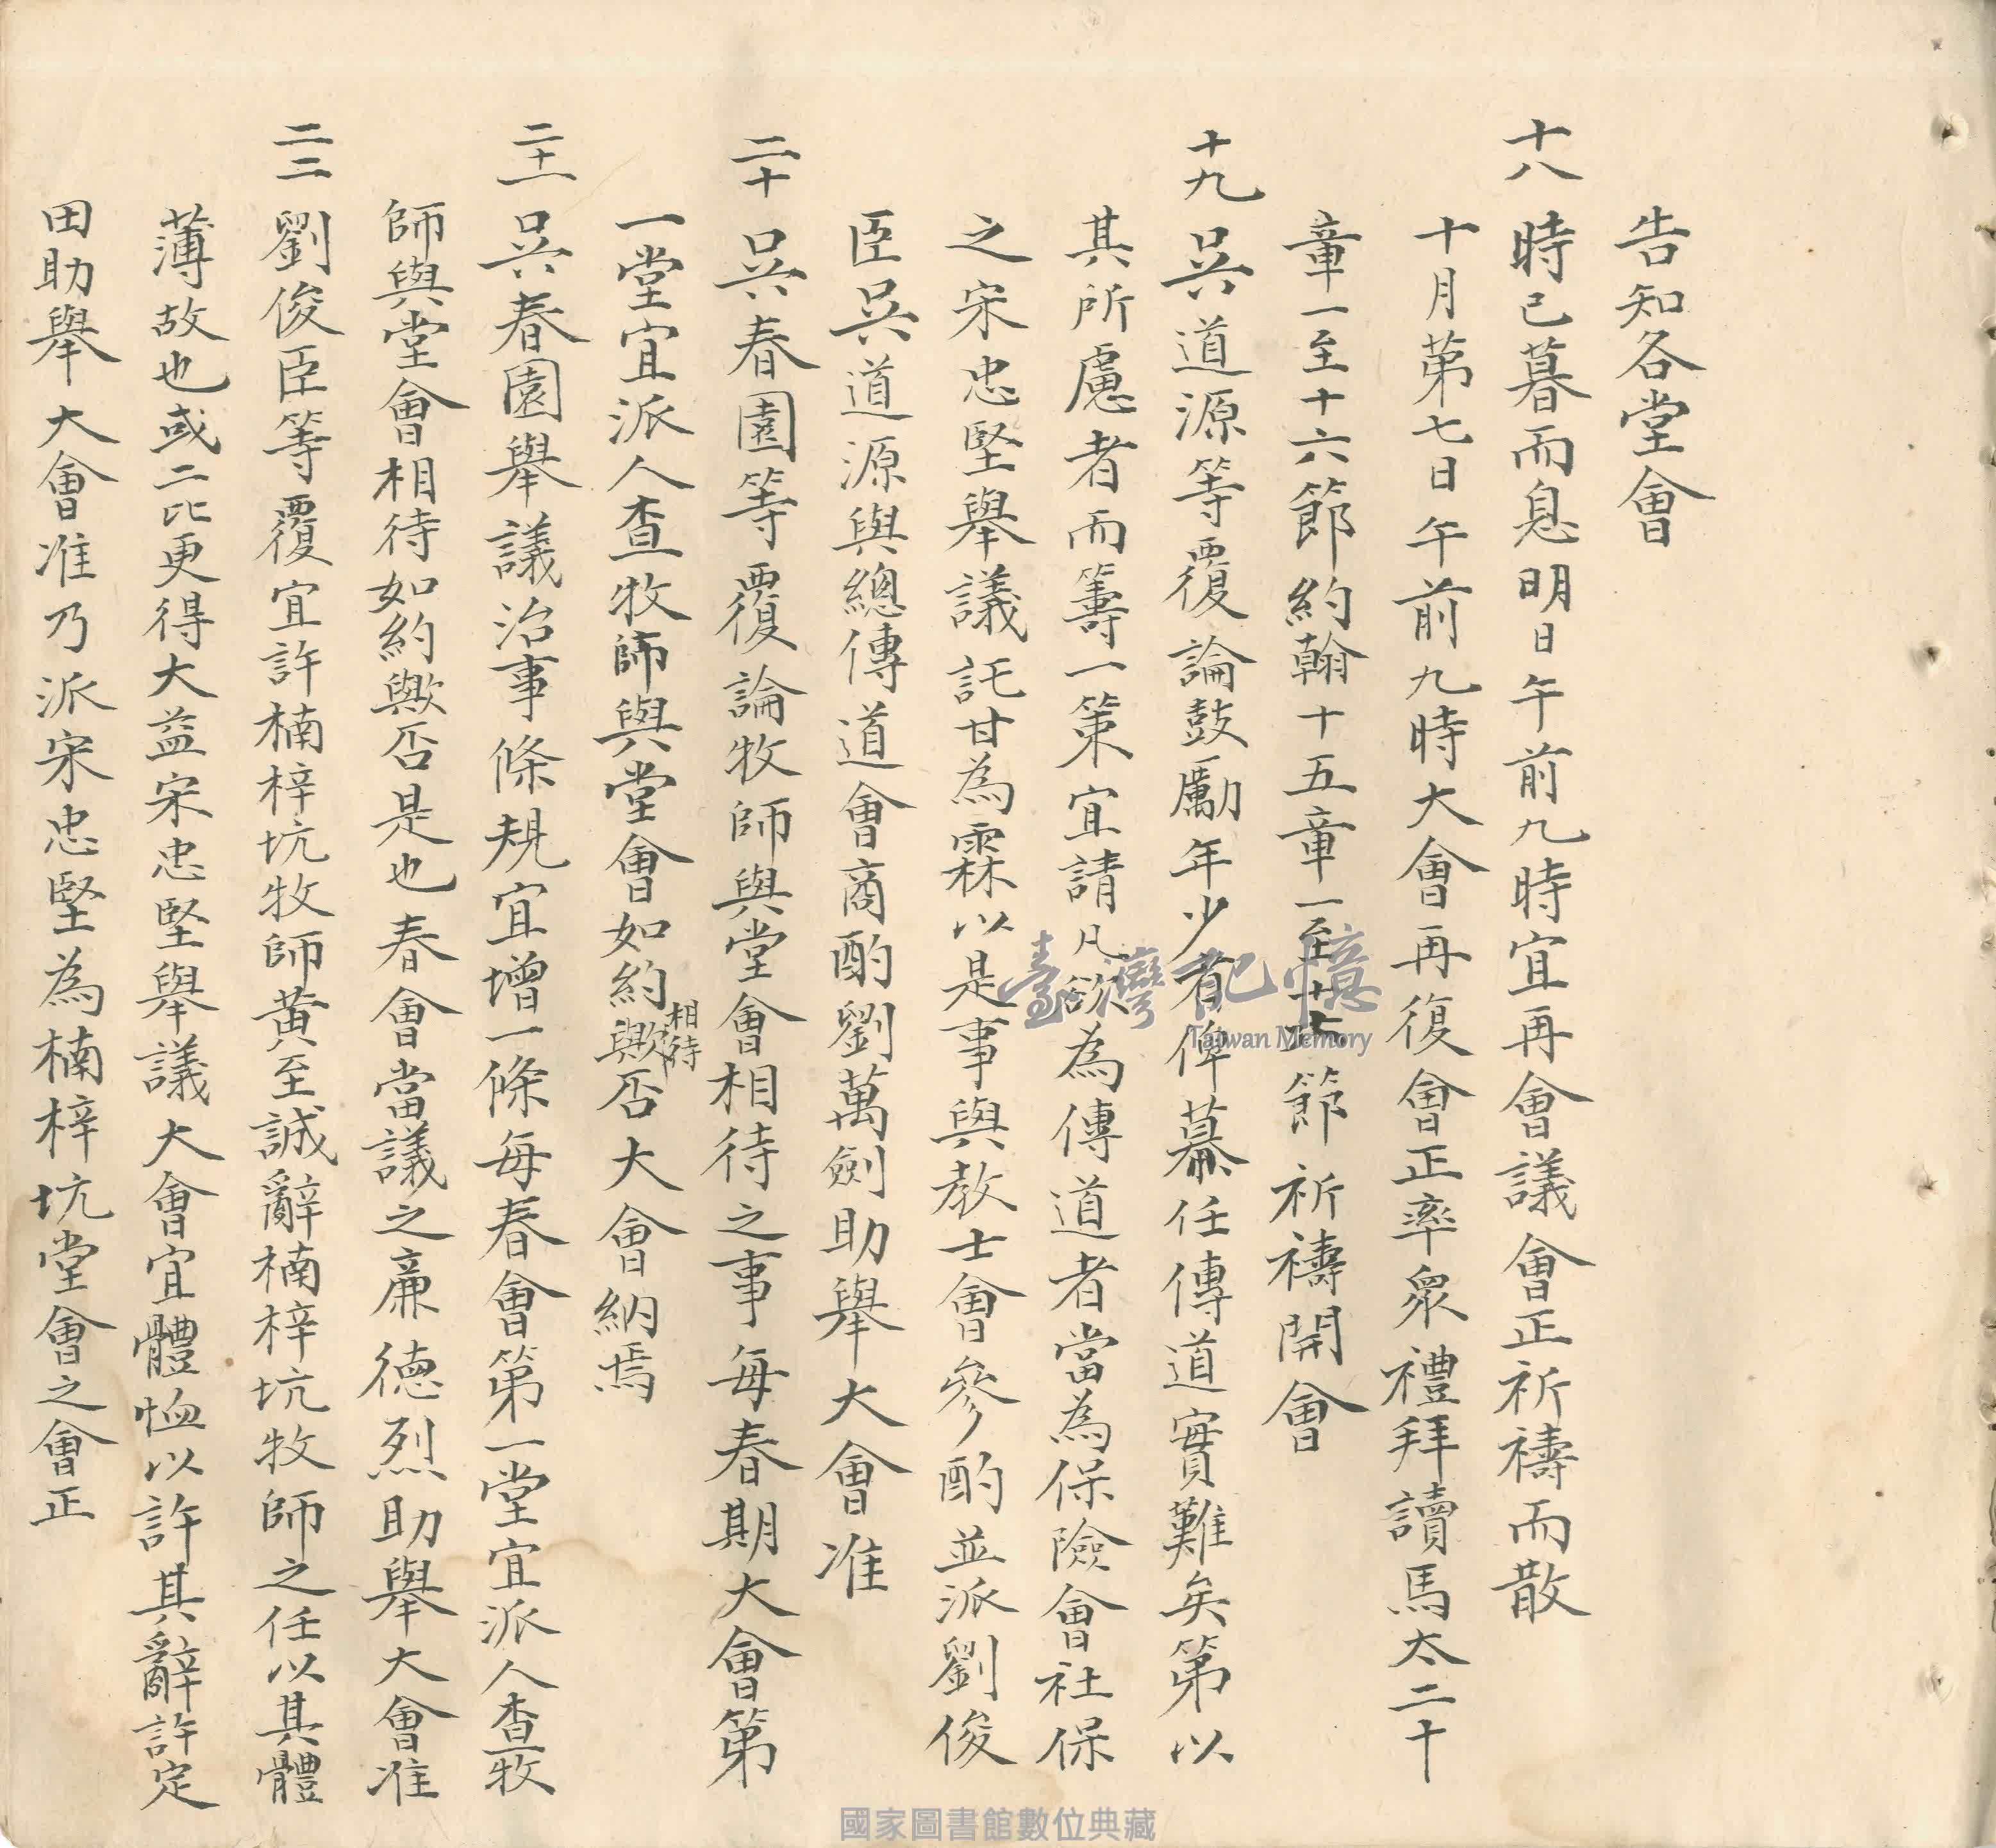 告知各堂會
十八 時已暮而息明日午前九時宜再會議會正祈禱而散
十月第七日午前九時大會再復會正率眾禮拜讀馬太二十
章一至十六節約翰十五章一至十七節 祈禱開會
十九 吳道源等覆論鼓勵年少者俾慕任傳道實難矣第以
其所慮者而籌一策宜請凡欲為傳道者當為保險會社保
之宋忠堅舉議託甘為霖以是事與教士會參酌並派劉俊
臣吳道源與總傳道會商酌劉萬劍助舉大會准
二十 吳春園等覆論牧師與堂會相待之事每春期大會第
一堂宜派人查牧師與堂會如約相待歟否大會納焉
二十一 吳春園舉議治事條規宜增一條每春會第一堂宜派人查牧
師與堂會相待如約歟否是也春會當議之廉德烈助舉大會准
二十二 劉俊臣等覆宜許楠梓坑牧師黃至誠辭楠梓坑牧師之任以其體
薄故也或二比更得大益宋忠堅舉議大會宜體恤以許其辭許定
田助舉 大會准乃派宋忠堅為楠梓坑堂會之會正
臺灣記憶
Taiwan Memory
國家圖書館數位典藏